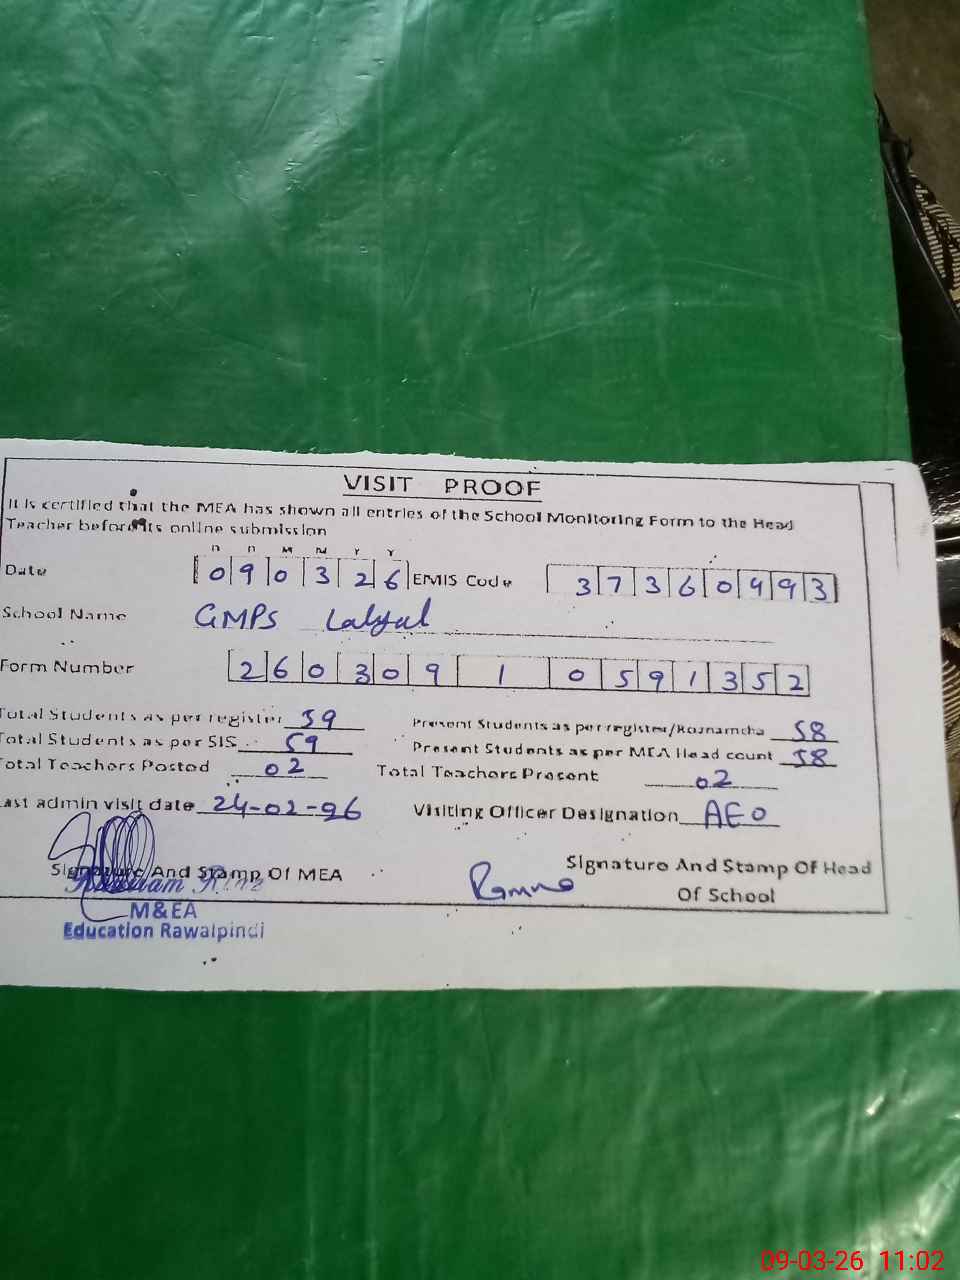 VISIT PROOF
It is certified that the MEA has shown all entries of the School Monitoring Form to the Head
Teacher before its online submission
D D M M Y Y
Date 0 9 0 3 2 6 EMIS Code 3 7 3 6 0 4 9 3
School Name GMPS
Form Number 2 6 0 3 0 9 1 0 5 9 1 3 5 2
Total Students as per register 59 Present Students as per register/Roznamcha 58
Total Students as per SIS 59 Present Students as per MEA Head count 58
Total Teachers Posted 02 Total Teachers Present 02
Last admin visit date 24-02-26 Visiting Officer Designation AEO
Signature And Stamp Of MEA Signature And Stamp Of Head
Of School
M&EA
Education Rawalpindi
09-03-26 11:02